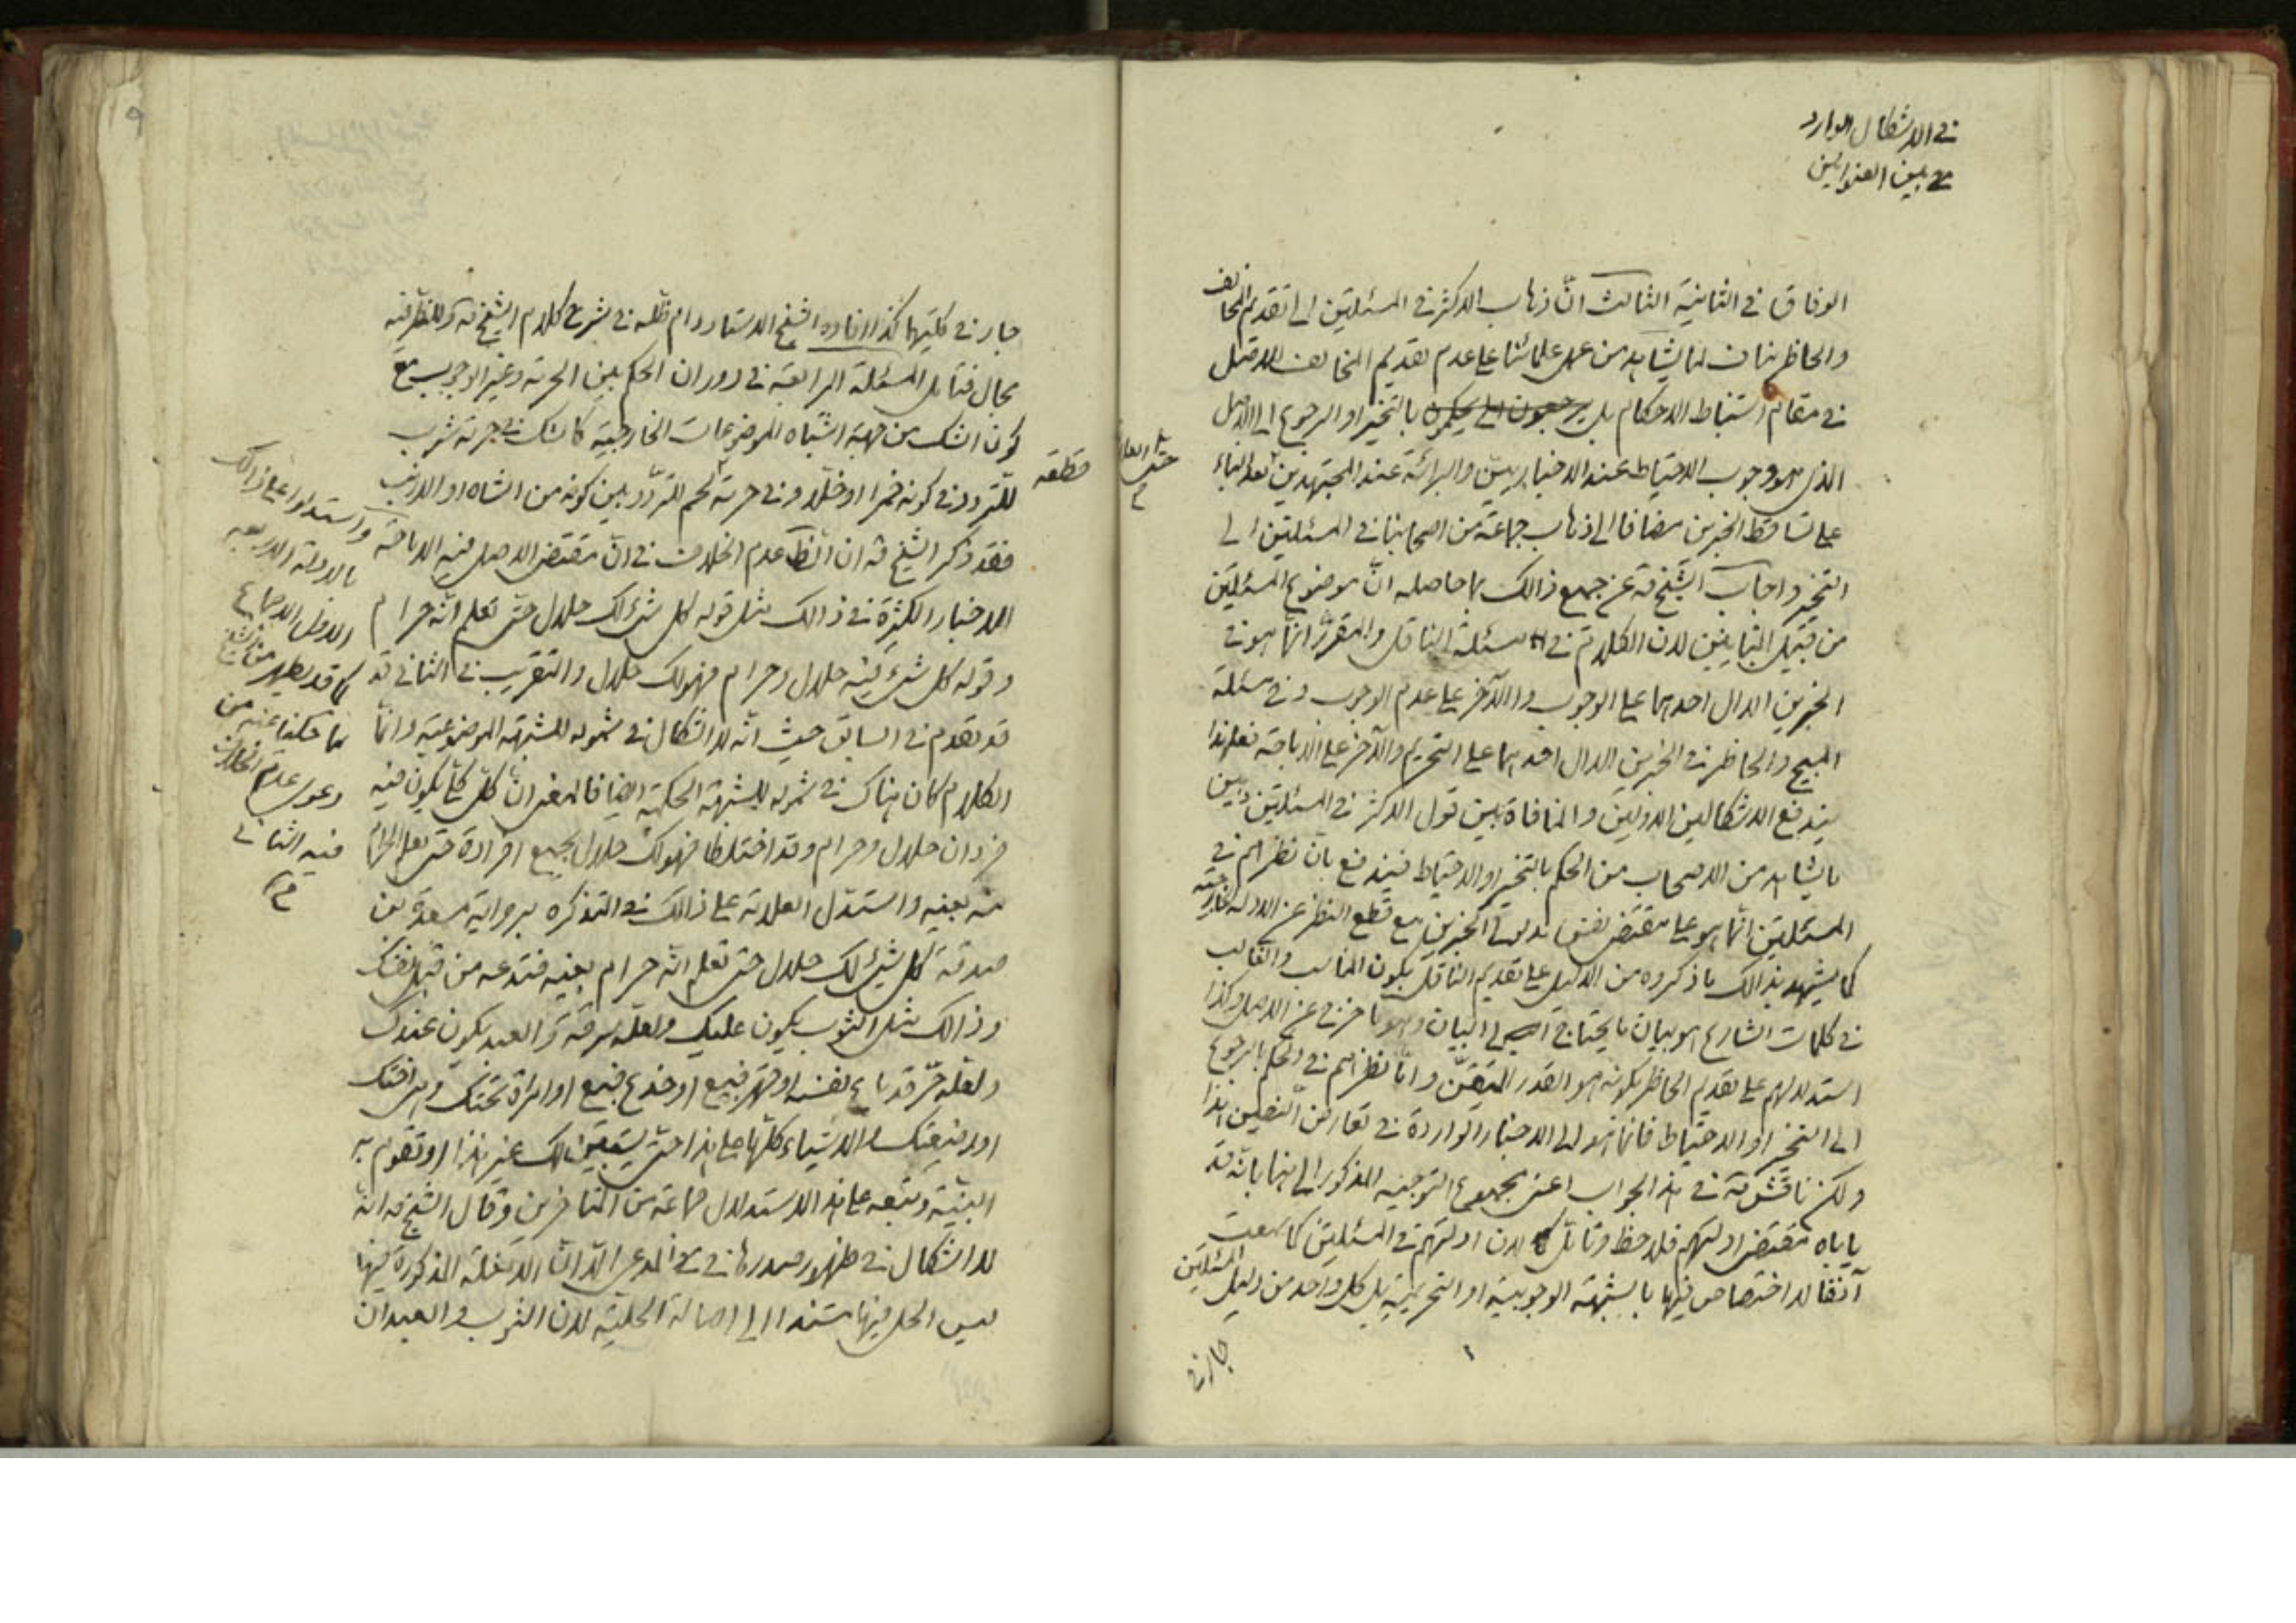 في الاشكال الوارد
في بين العنوانين
الوفاق في الثانية الثالث انّ ذهاب الاكثر في المسئلتين الى تقديم المخالف
والحاظر ينافى لما يشاهد من عمل علمائنا على عدم تقديم المخالف للاصل
في مقام استنباط الاحكام بل يرجعون الى يحكمون بالتخيير او الرجوع الى الاصل
الذى هو وجوب الاحتياط عند الاخباريين والبرائة عند المجتهدين بعد البناء
على تساقط الخبرين مضافا الى ذهاب جماعة من اصحابنا في المسئلتين الى
التخيير واجاب الشيخ قه عن جميع ذالك بما حاصله انّ موضوع المسئلتين
من قبيل المتباينين لان الكلام ثم في مسئلة الناقل والمقرر انّما هو في
الخبرين الدال احدهما على الوجوب والآخر على عدم الوجوب وفي مسئلة
المبيح والحاظر في الخبرين الدال احدهما على التحريم والآخر على الاباحة فعلى هذا
يندفع الاشكالين الاولين والمنافاة بين قول الاكثر في المسئلتين وبين
ما يشاهد من الاصحاب من الحكم بالتخيير والاحتياط فيندفع بان نظرهم في
المسئلتين انّما هو على مقتضى نفس مدلولى الخبرين مع قطع النظر عن الادلة الخارجية
كما يشهد بذالك ما ذكروه من الدليل على تقديم الناقل بكون المناسب والغالب
في كلمات الشارع هو بيان ما يحتاج الى البيان وهو تاخره عن الاصل وكذا
استدلالهم على تقديم الحاظر بكونه هو القدر المتيقّن وامّا نظرهم في الحكم بالرجوع
الى التخيير او الاحتياط فانما هو الى الاخبار الواردة في تعارض النصين هذا
ولكن ناقش قه في هذا الجواب اعنى بمجموع التوجيه المذكور الى هنا بانّه قد
ياباه مقتضى ادلتهم فلاحظ وتامّل لان ادلتهم في المسئلتين كما سمعت
آنفا لا اختصاص فيها بالشبهة الوجوبية او التحريمية بل كل واحد من دليل المسئلتين
جار في
جار في كليهما كذا افاده الشيخ الاستاد دام ظله في شرح كلام الشيخ قه وللنظر فيه
مجال فتامل المسئلة الرابعة في دوران الحكم بين الحرمة وغير الوجوب مع
كون الشك من جهة اشتباه الموضوعات الخارجية كالشك في حرمة شرب
للتردد في كونه خمرا او خلا وفي حرمة لحم للتردّد بين كونه من الشاه او الارنب
فقد ذكر الشيخ قه ان الظ عدم الخلاف في انّ مقتضى الاصل فيه الاباحة
للاخبار الكثيرة في ذالك مثل قوله كل شئ لك حلال حتى تعلم انّه حرام
وقوله كل شئ فيه حلال وحرام فهو لك حلال والتقريب في الثاني قد
قد تقدم في السابق حيث انّه لا اشكال في شموله للشبهة الموضوعية وانّما
الكلام كان هناك في شموله للشبهة الحكمية ايضا فالمعنى انّ كل كلّى يكون فيه
فردان حلال وحرام وقد اختلطا فهو لك حلال بجميع افراده حتى تعلم الحرام
منه بعينه واستدل العلامة على ذالك في التذكره برواية مسعدة بن
صدقة كل شئ لك حلال حتى تعلم انّه حرام بعينه فتدعه من قبل نفسك
وذالك مثل الثوب يكون عليك ولعله سرقة والعبد يكون عندك
ولعله حرّ قد باع نفسه او قهر فبيع او خدع فبيع او امراة تحتك وهى اختك
او رضيعتك والاشياء كلها على هذا حتى يستبين لك غير هذا او تقوم به
البيّنة وتبعه على هذا الاستدلال جماعة من المتاخرين وقال الشيخ قه انّه
لا اشكال في ظهور صدرها في المدعى الّا انّ الامثلة المذكورة فيها
ليس الحل فيها مستندا الى اصالة الحلية لان الثوب والعبد ان
واستدلوا على ذالك
بالادلة الاربعه
الاولى الاجماع
كما قد يظهر من الشيخ
مما حكينا عنه من
دعوى عدم الخلاف
فيه الثاني